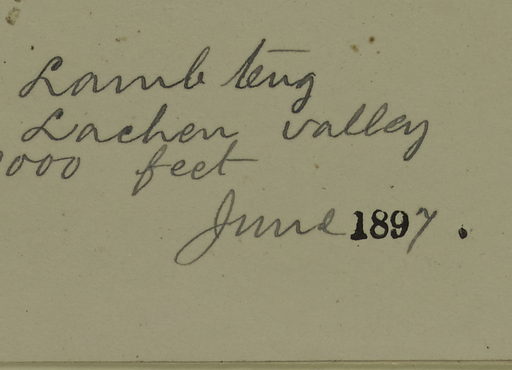 Lamb teng
Lachen valley
000 feet
June 1897.